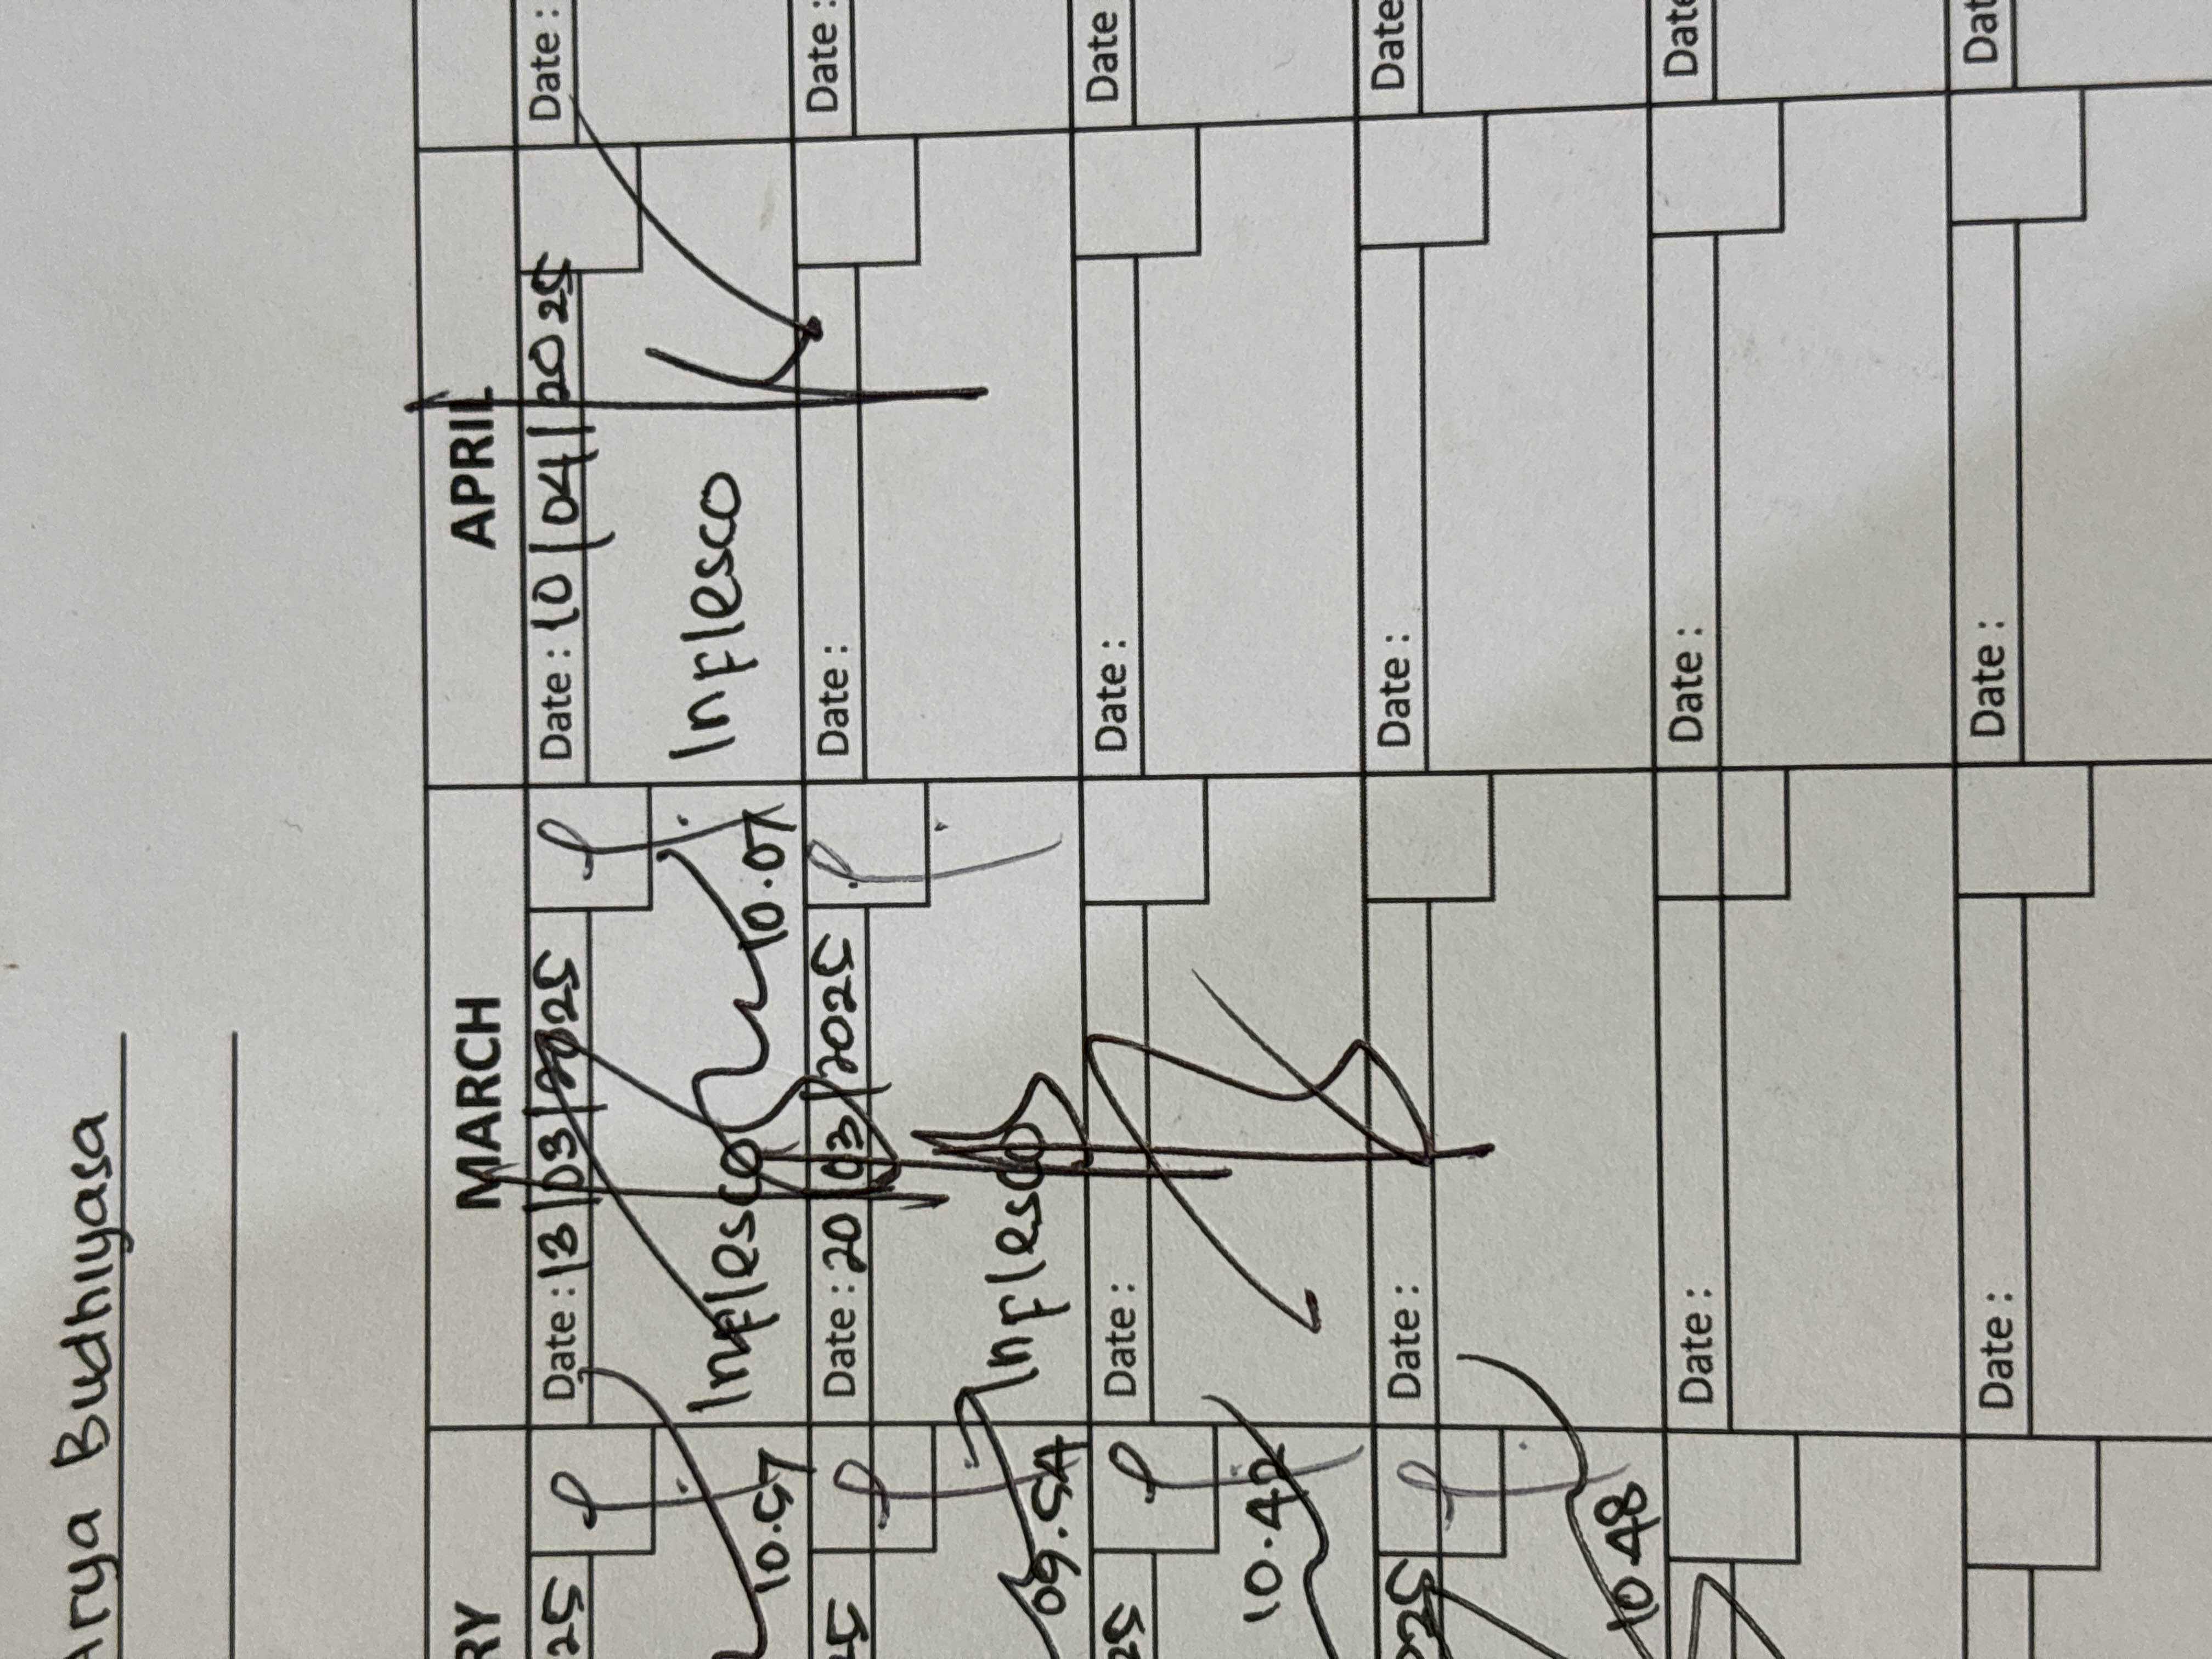 Arya Budhiyasa
RY MARCH APRIL
25 Date : 13/03/2025 Date : 10/04/2025 Date :
10.57 Inflesco 10.07 Inflesco
25 Date : 20/03/2025 Date : Date :
09.54 Inflesco
25 Date : Date : Date
10.42
025 Date : Date : Date
10.48
Date : Date : Date
Date : Date : Dat